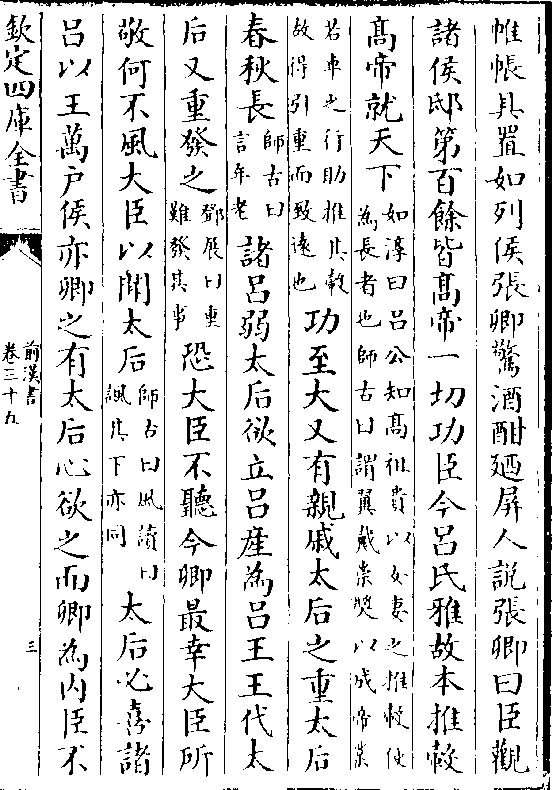 帷帳具置如列侯張卿驚酒酣廼屏人説張卿曰臣觀
諸侯邸第百餘皆髙帝一切功臣今吕氏雅故本推轂
髙帝就天下如淳曰吕公知髙祖貴以女妻之推轂使
為長者也師古曰謂翼戴崇奬以成帝業
若車之行助推其轂
故得引重而致逺也功至大又有親戚太后之重太后
春秋長師古曰
言年老諸吕弱太后欲立吕産為吕王王代太
后又重發之鄧展曰重
難發其事恐大臣不聽今卿最幸大臣所
敬何不風大臣以聞太后師古曰風讀曰
諷其下亦同太后必喜諸
吕以王萬户侯亦卿之有太后心欲之而卿為内臣不
欽定四庫全書
前漢書
卷三十九
三